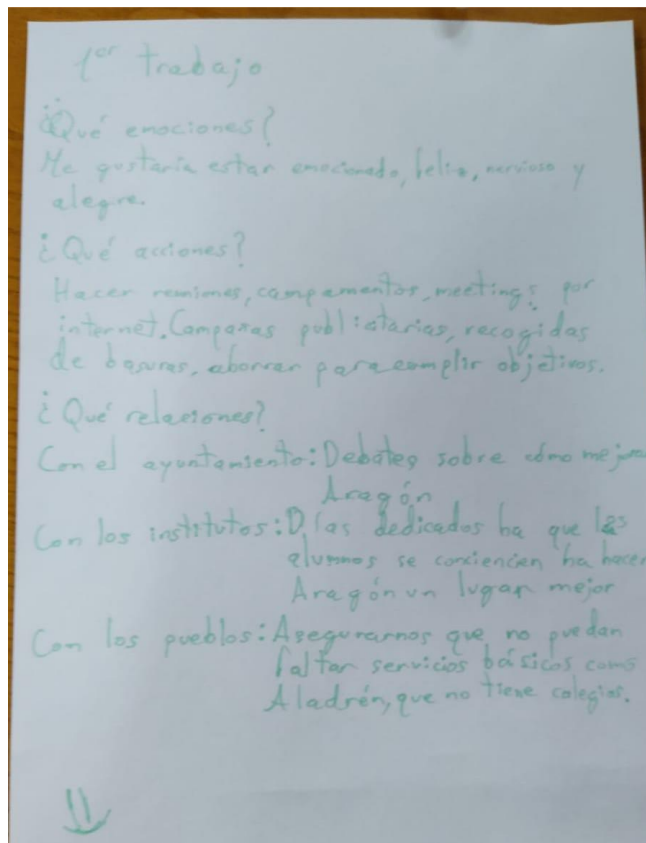 1er trabajo
¿Qué emociones?
Me gustaría estar emocionado, feliz, nervioso y
alegre.
¿Qué acciones?
Hacer reuniones, campamentos, meetings por
internet. Campañas publicitarias, recogidas
de basuras, ahorrar para complir objetivos.
¿Qué relaciones?
Con el ayuntamiento: Debates sobre cómo mejorar
Aragón
Con los institutos: Días dedicados ha que los
alumnos se conciencien ha hacer
Aragón un lugar mejor
Con los pueblos: Asegurarnos que no puedan
faltar servicios básicos como
Aladrén, que no tiene colegios.